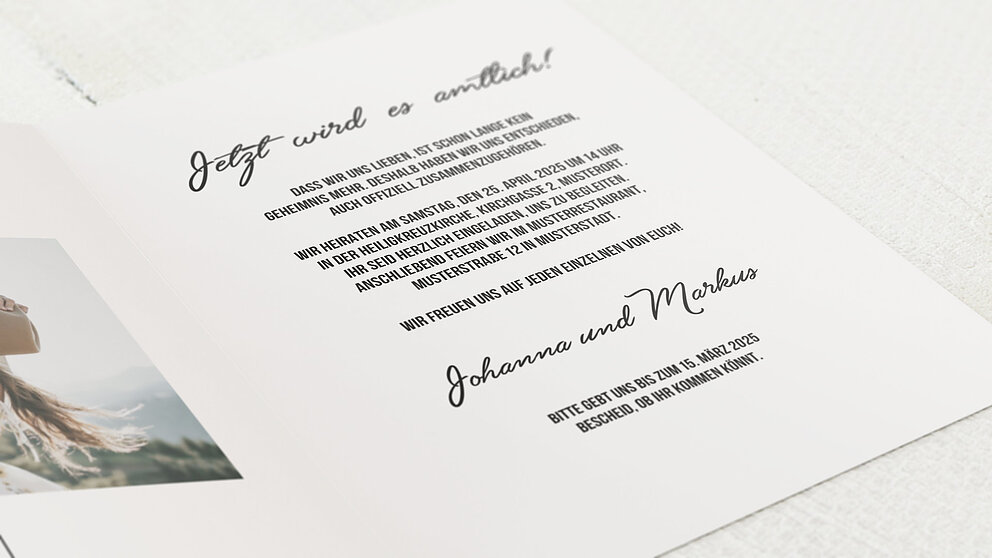 Jetzt wird es amtlich!
DASS WIR UNS LIEBEN, IST SCHON LANGE KEIN
GEHEIMNIS MEHR. DESHALB HABEN WIR UNS ENTSCHIEDEN,
AUCH OFFIZIELL ZUSAMMENZUGEHÖREN.
WIR HEIRATEN AM SAMSTAG, DEN 25. APRIL 2025 UM 14 UHR
IN DER HEILIGKREUZKIRCHE, KIRCHGASSE 2, MUSTERORT.
IHR SEID HERZLICH EINGELADEN, UNS ZU BEGLEITEN.
ANSCHLIEBEND FEIERN WIR IM MUSTERRESTAURANT,
MUSTERSTRAßE 12 IN MUSTERSTADT.
WIR FREUEN UNS AUF JEDEN EINZELNEN VON EUCH!
Johanna und Markus
BITTE GEBT UNS BIS ZUM 15. MÄRZ 2025
BESCHEID, OB IHR KOMMEN KÖNNT.